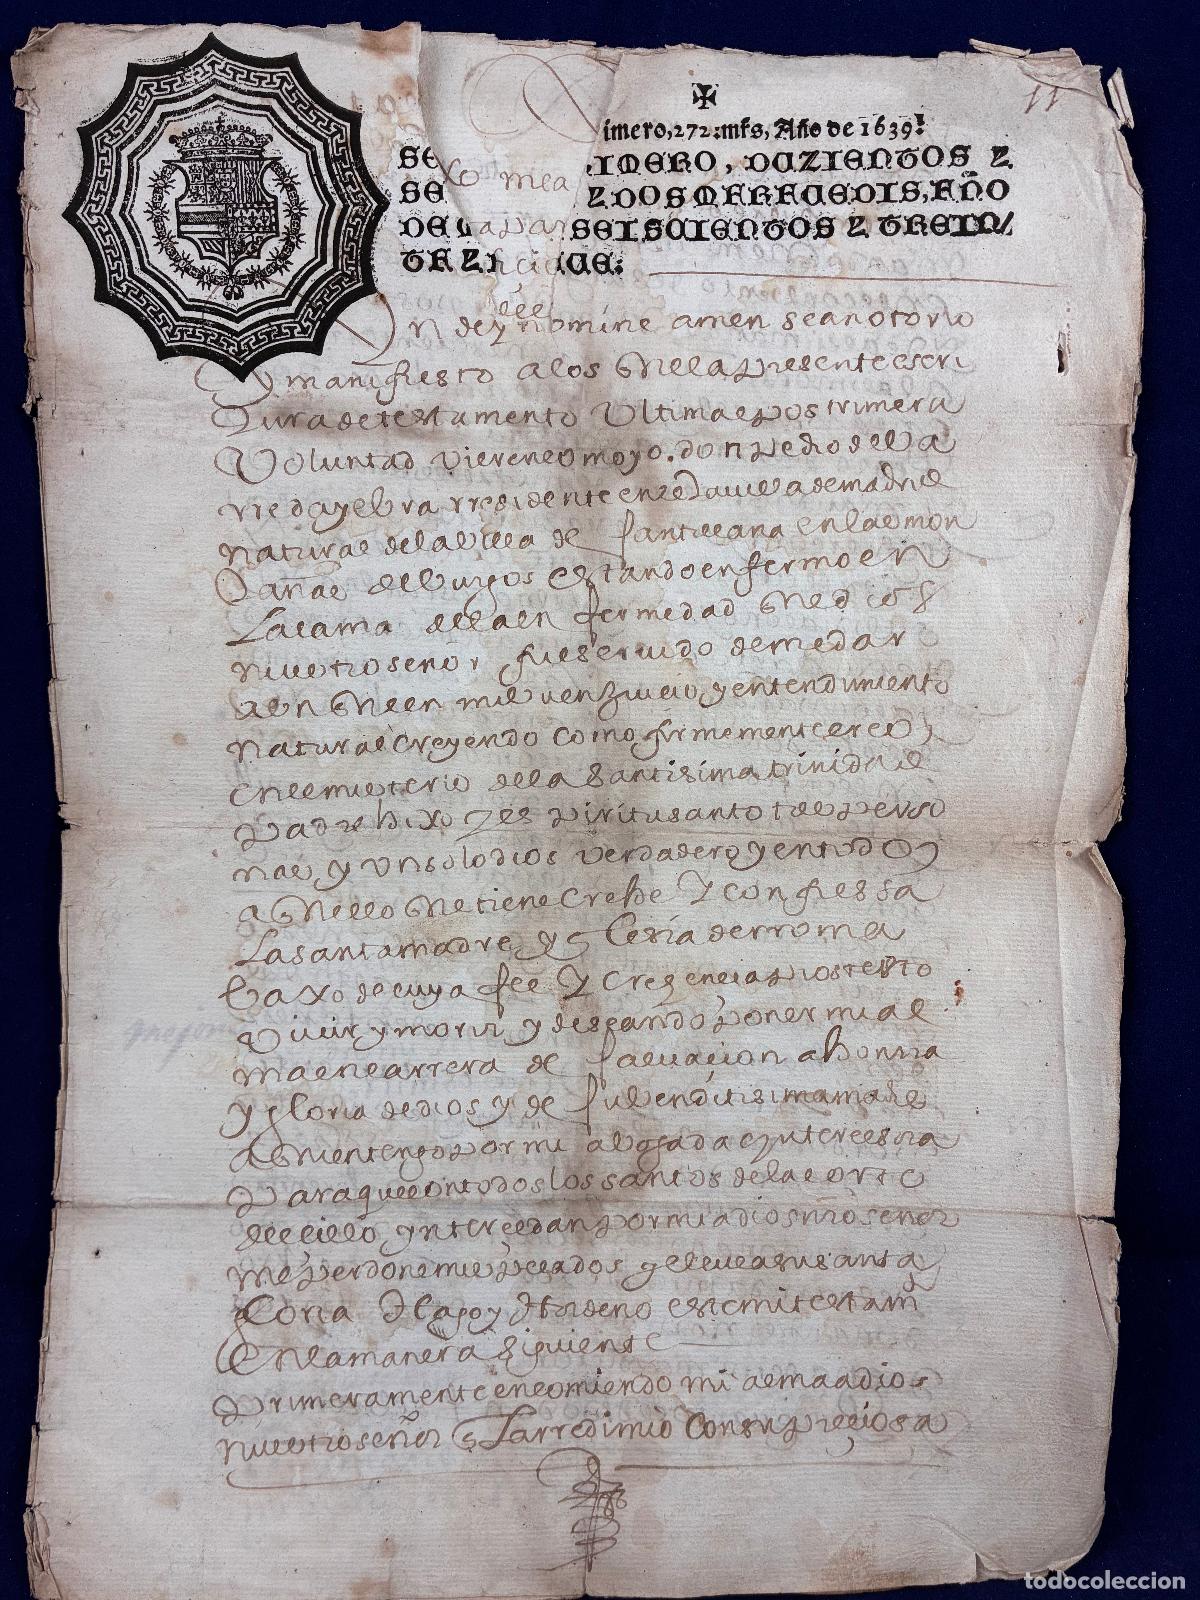 11
imero,272:mrs, Año de 1639.
SE IMERO, DUZIENTOS Y
SE Y DOS MARAVEDIS, AÑO
DE SEISCIENTOS Y TREIN/
TA Y N UE.
Yn dey nomine amen sea notorio
y manifiesto a los que la presente escri
tura de testamento ultima e postrimera
Voluntad vieren como yo. don pedro de la
vrresidente en esta villa de madrid
natural de la villa de santillana en la mon
taña de burgos estando enfermo en
la cama de la enfermedad que dios
nuestro señor fue seruido de me dar
aunque en mi buen juicio y entendimiento
natural creyendo como firmemente creo
en el misterio de la santisima trinidad
padre hixo y espiritu santo tres perso
nas y un solo dios verdadero y en todo
aquello que tiene crehe y confiessa
la santa madre yglesia de rroma
baxo de cuya fee y crehencia protesto
viuir y morir y deseando poner mi al
ma en carrera de saluacion a honrra
y gloria de dios y de su benditisima madre
a quien tengo por mi abogada e yntercesora
para que con todos los santos de la corte
del cielo ynterceda por mi a dios nro señor
me perdone mis pecados y lleue a su santa
gloria Hago y Hordeno este mi testamto
en la manera siguiente
primeramente encomiendo mi alma a dios
nuestro señor q la rredimio con su preciosa
todocoleccion